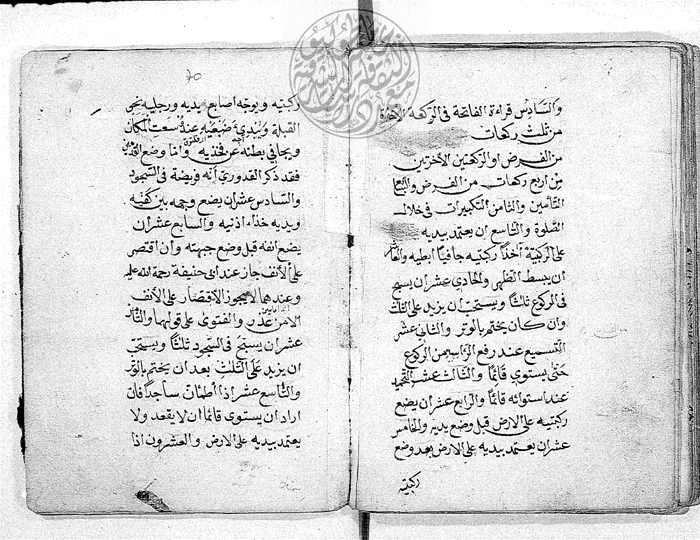 والسادس قراءة الفاتحة في الركعة الاخيرة
من ثلث ركعات
من الفرض او الركعتين الاخرتين
من اربع ركعات من الفرض والسابع
التأمين والثامن التكبيرات في خلال
الصلوة والتاسع ان يعتمد بيديه
على الركبية آخذا ركبتيه جافيا ابطيه والعاشر
ان يبسط الظهر والحادي عشر ان يسبح
في الركوع ثلثا ويستحب ان يزيد على الثلث
وان كان يختم بالوتر والثاني عشر
التسميع عند رفع الراس من الركوع
حتى يستوي قائما والثالث عشر التحميد
عند استوائه قائما والرابع عشر ان يضع
ركبتيه على الارض قبل وضع يديه والخامس
عشر ان يعتمد بيديه على الارض بعد وضع
ركبتيه
ركبتيه ويوجه اصابع يديه ورجليه نحو
القبلة ويبدي ضبعيه عند سعت المكان
ويجافي بطنه عن فخذيه واما وضع القدمين
فقد ذكر القدوري انه فريضة في السجود
والسادس عشر ان يضع وجهه بين كفيه
ويديه حذاء اذنيه والسابع عشر ان
يضع انفه قبل وضع جبهته وان اقتصر
على الأنف جاز عند ابي حنيفة رحمة الله عليه
وعندهما لا يجوز الاقتصار على الأنف
الا من عذر والفتوى على قولهما والثامن
عشر ان يسبح في السجود ثلثا ويستحب
ان يزيد على الثلث بعد ان يختم بالوتر
والتاسع عشر اذا اطمأن ساجدا فان
اراد ان يستوى قائما ان لا يقعد ولا
يعتمد بيديه على الارض والعشرون اذا